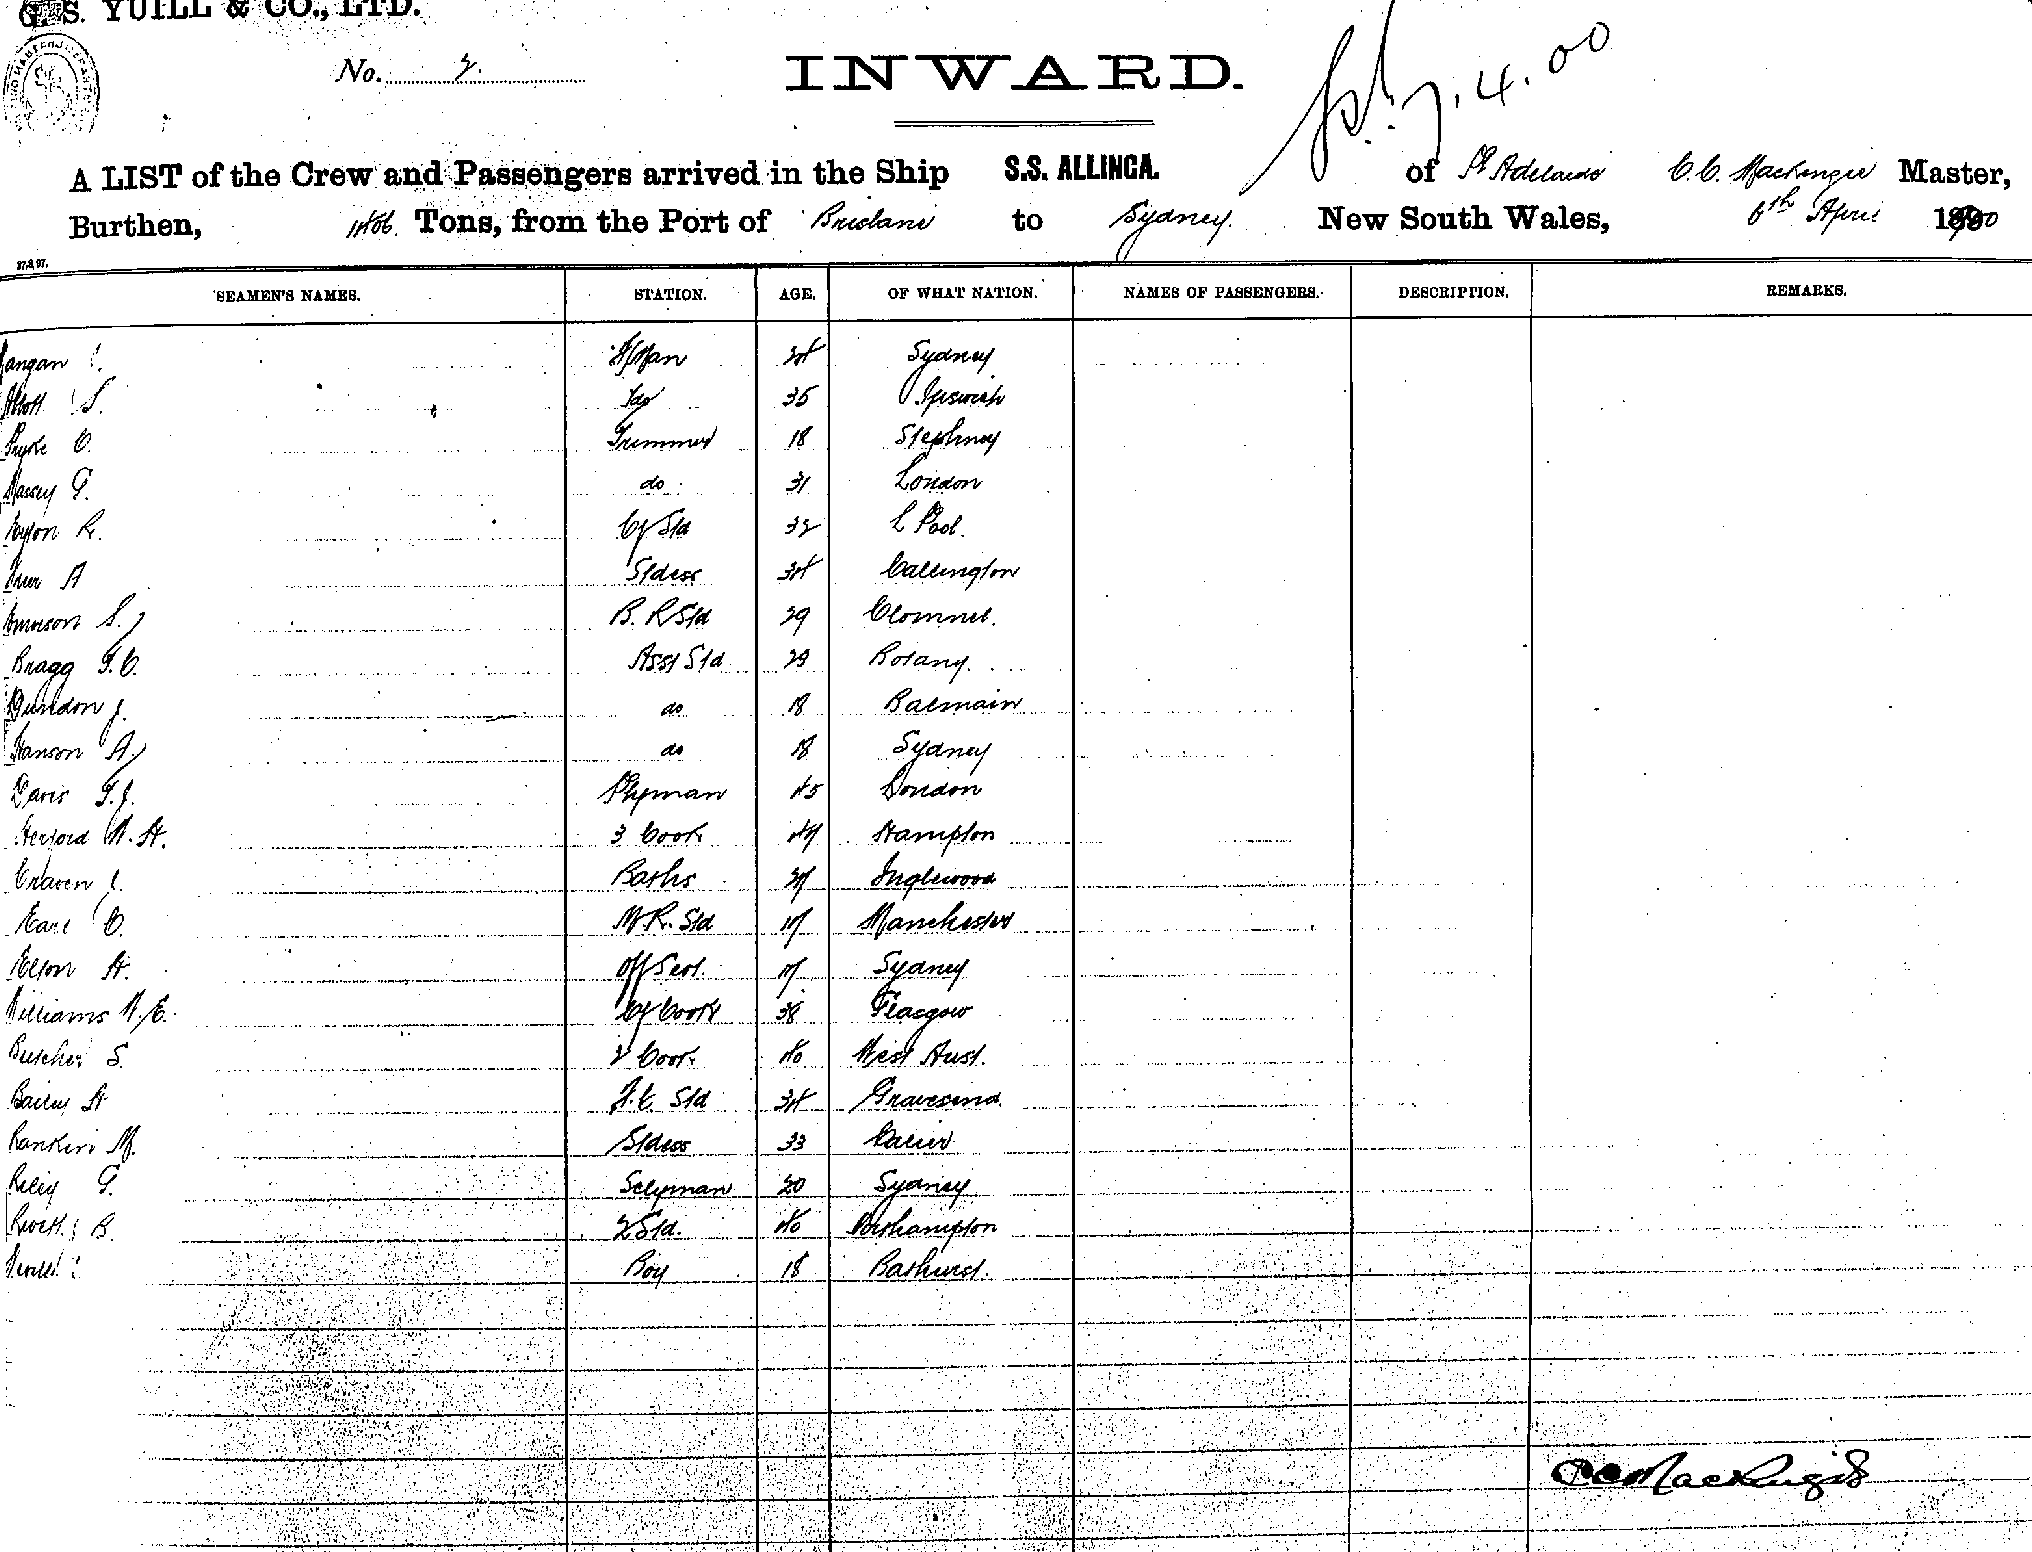 G. S. YUILL & CO., LTD.
No. 2.
INWARD.
7.4.00
A LIST of the Crew and Passengers arrived in the Ship S.S. ALLINGA. of Pt Adelaide C. C. Mackenzie Master,
Burthen, Tons, from the Port of Brisbane to Sydney. New South Wales, 6th April 1900
27.3.97.
SEAMEN'S NAMES. STATION. AGE. OF WHAT NATION. NAMES OF PASSENGERS. DESCRIPTION. REMARKS.
angan 34 Sydney
S. 35 Ipswich
Pryke C. Trimmer 18 Stephney
Massey G. do 31 London
R. Cf Std 32 L Pool.
A Stdess 34 Callington
S. J B. R Std 29 Clonmel.
Bragg F. C. Asst Std 29 Botany.
J. do 18 Balmain
Hanson A J do 18 Sydney
Davis F. J. 45 London
W. H. 3 Cook 47 Hampton
Craven J. Baths 27 Inglewood
Earl C. M R. Std 17 Manchester
Elson H. Off Serv. 17 Sydney
Williams W. E. Cf Cook 38 Glasgow
Butcher S. 2 Cook 40 West Aust.
Bailey H F. C Std 34 Gravesend.
Rankin M. Stdess 33
Riley G. Sclyman 20 Sydney
B. 2 Std. 40 Northampton
Boy 18 Bathurst.
C C Mackenzie